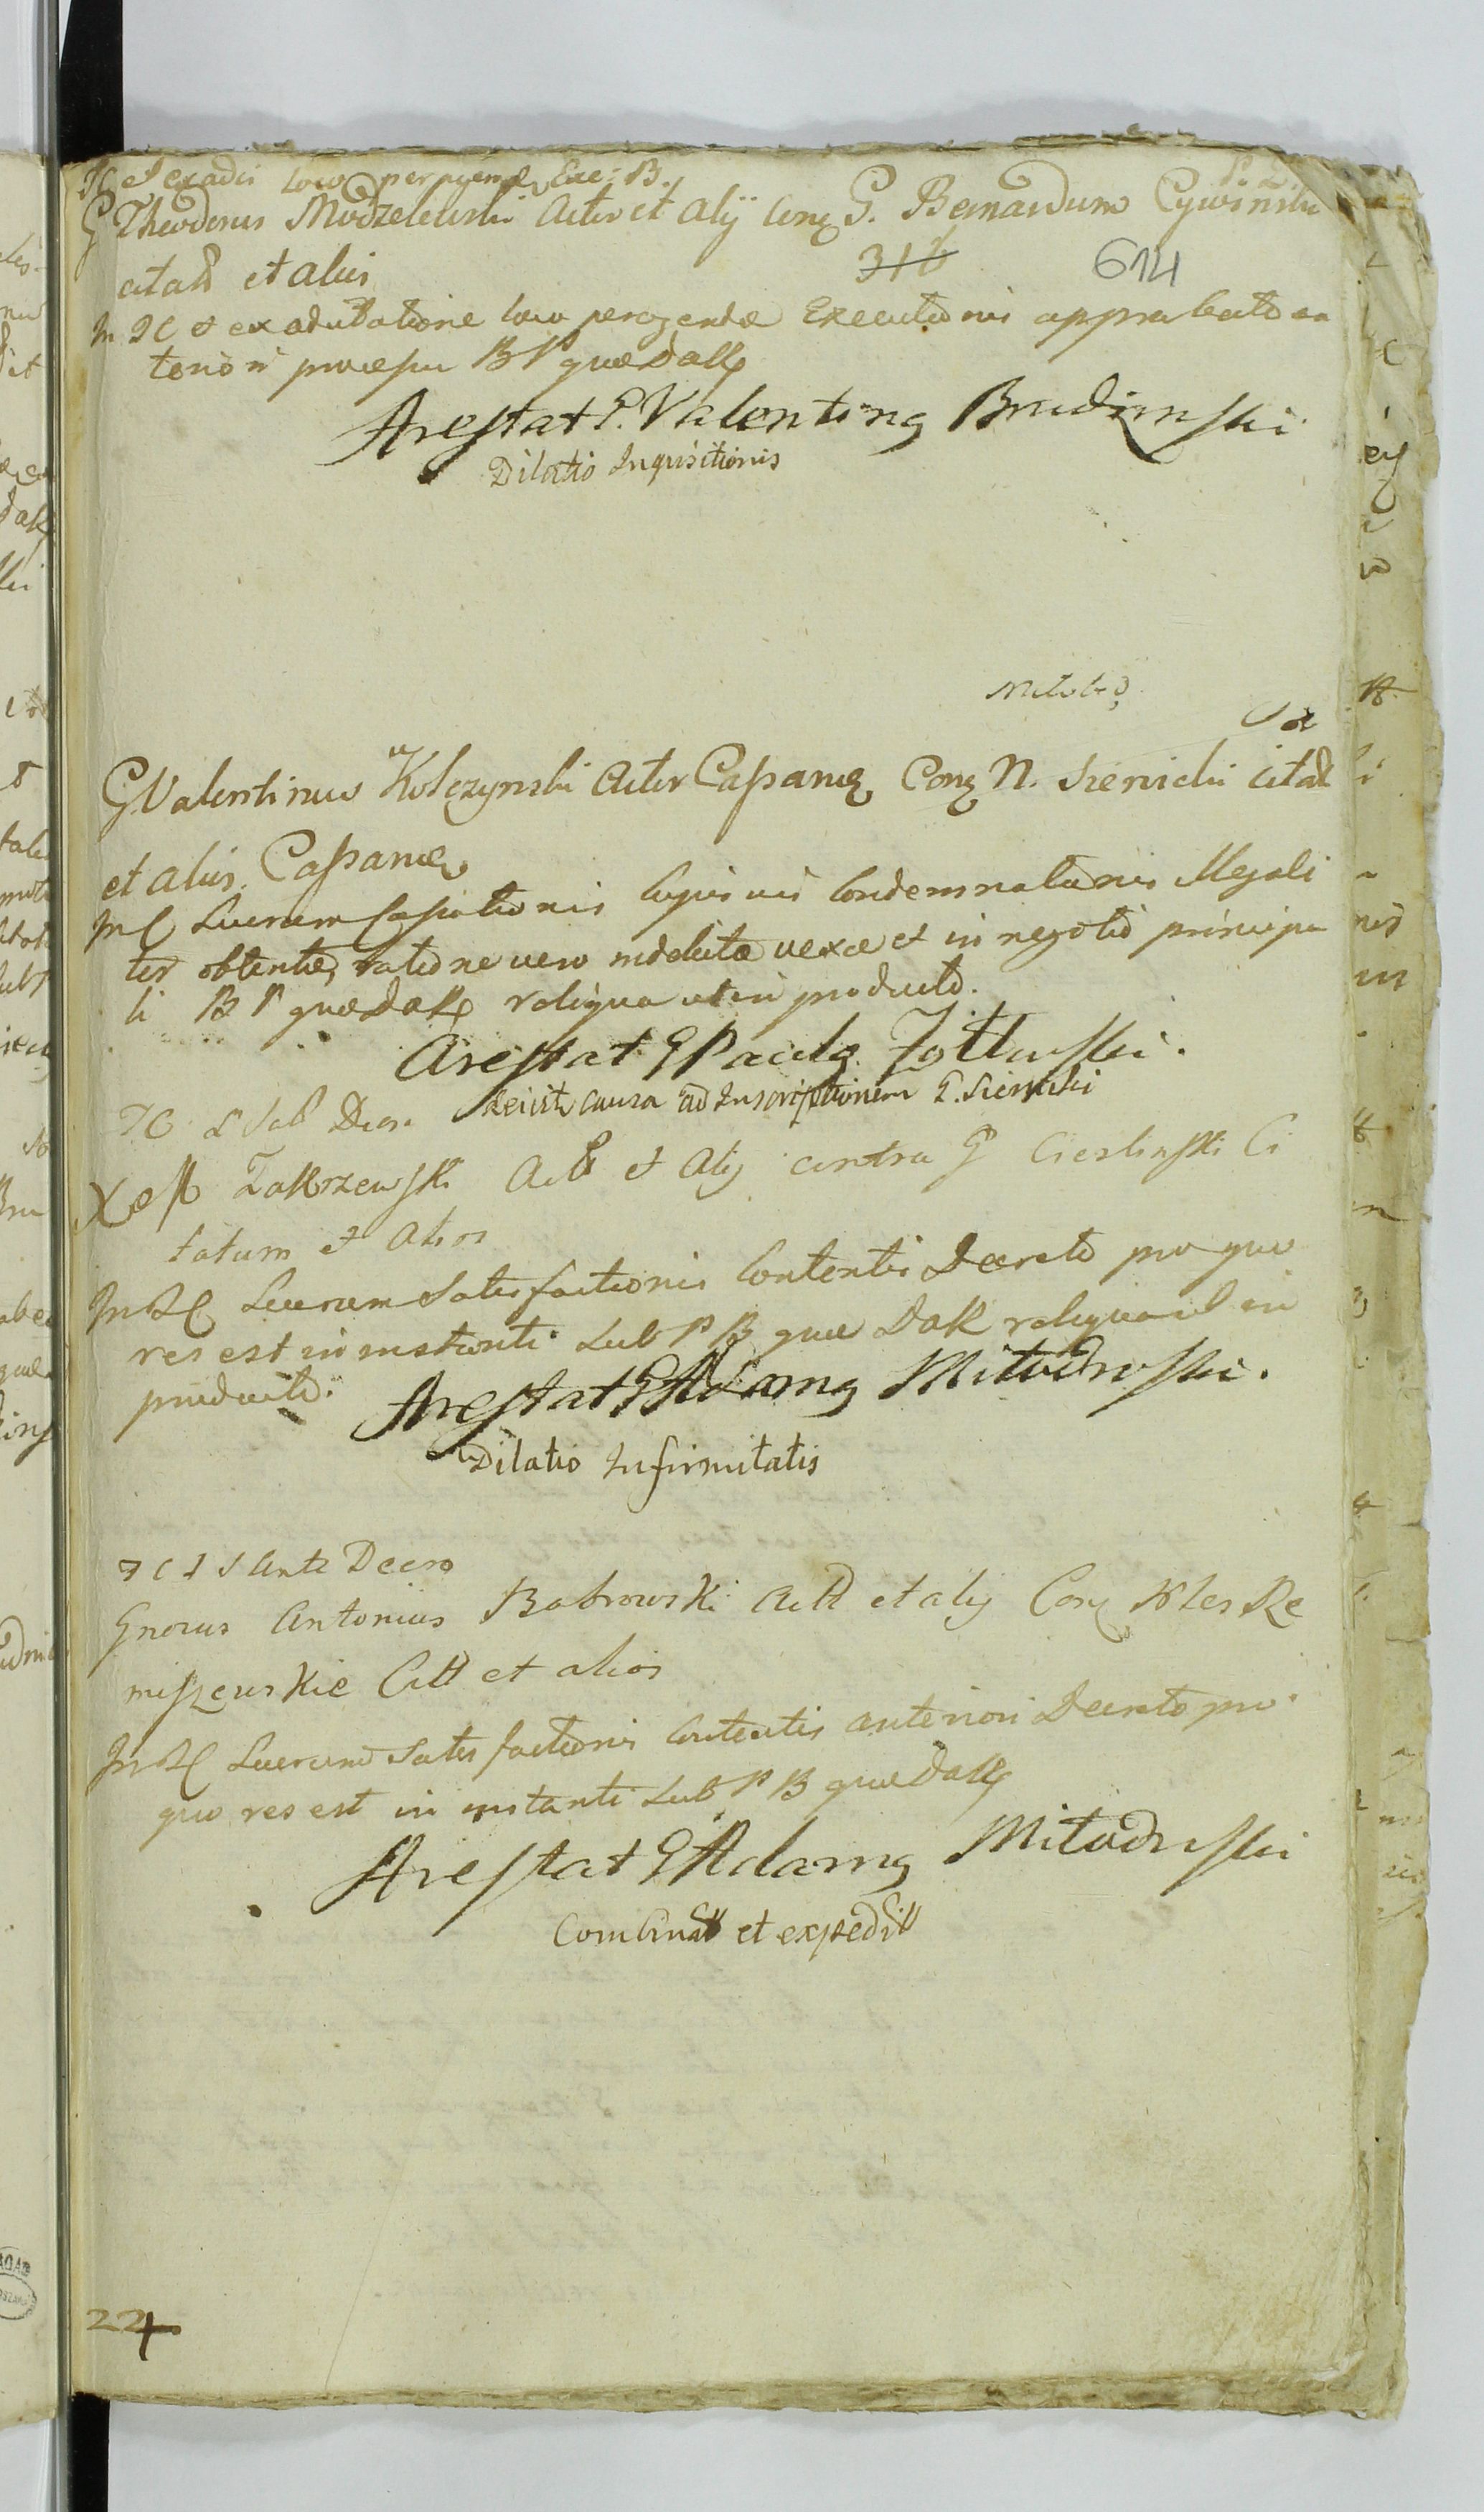 G Theodorus Modzelewski Actor et Alij Conq G. Bernardum Cywinski
citatt et alios
31b
614
In TC et ex aditatione loco peragendæ Executionis approbato an
teriori processu B P quæ Dak
Arestat G. Valentinq Brudzinski
Dilatio Inquisitionis
G Valentinus Kolczynski Actor Cassanq Conq N. Sienicki citatt
et alios Cassanq
In C Luerum Cassationis Copiosæ Condemnationis Illegali
ter obtentæ, ratione vero indebitæ vexæ et in negotio principa
li B P quæ Dak reliqua ut in producto.
Arestat G Paulq Zołtowski.
Reiicit Causa ad Inscriptionem G. Sienicki
Zakrzewski Act et Alij contra G Cieslinski Ci
tatum et Alios
In C Luerum Satisfactionis Contentis Decreto pro quo
res est in instanti sub P B quæ Dak reliqua ut in
producto.
Arestat G Adamq Mitodrowski.
Dilatio Infirmitatis
TC S S Ante Decro
Gnorus Antonius Bobrowski Act et alij Conq Nles Re
miszewskie Citt et alios
In C Luerum Satisfactionis Contentis anteriori Decreto pro
quo res est in instanti sub P B quæ Dak
Arestat G Adamq Mitodrowski
Combinatt et expeditt
224